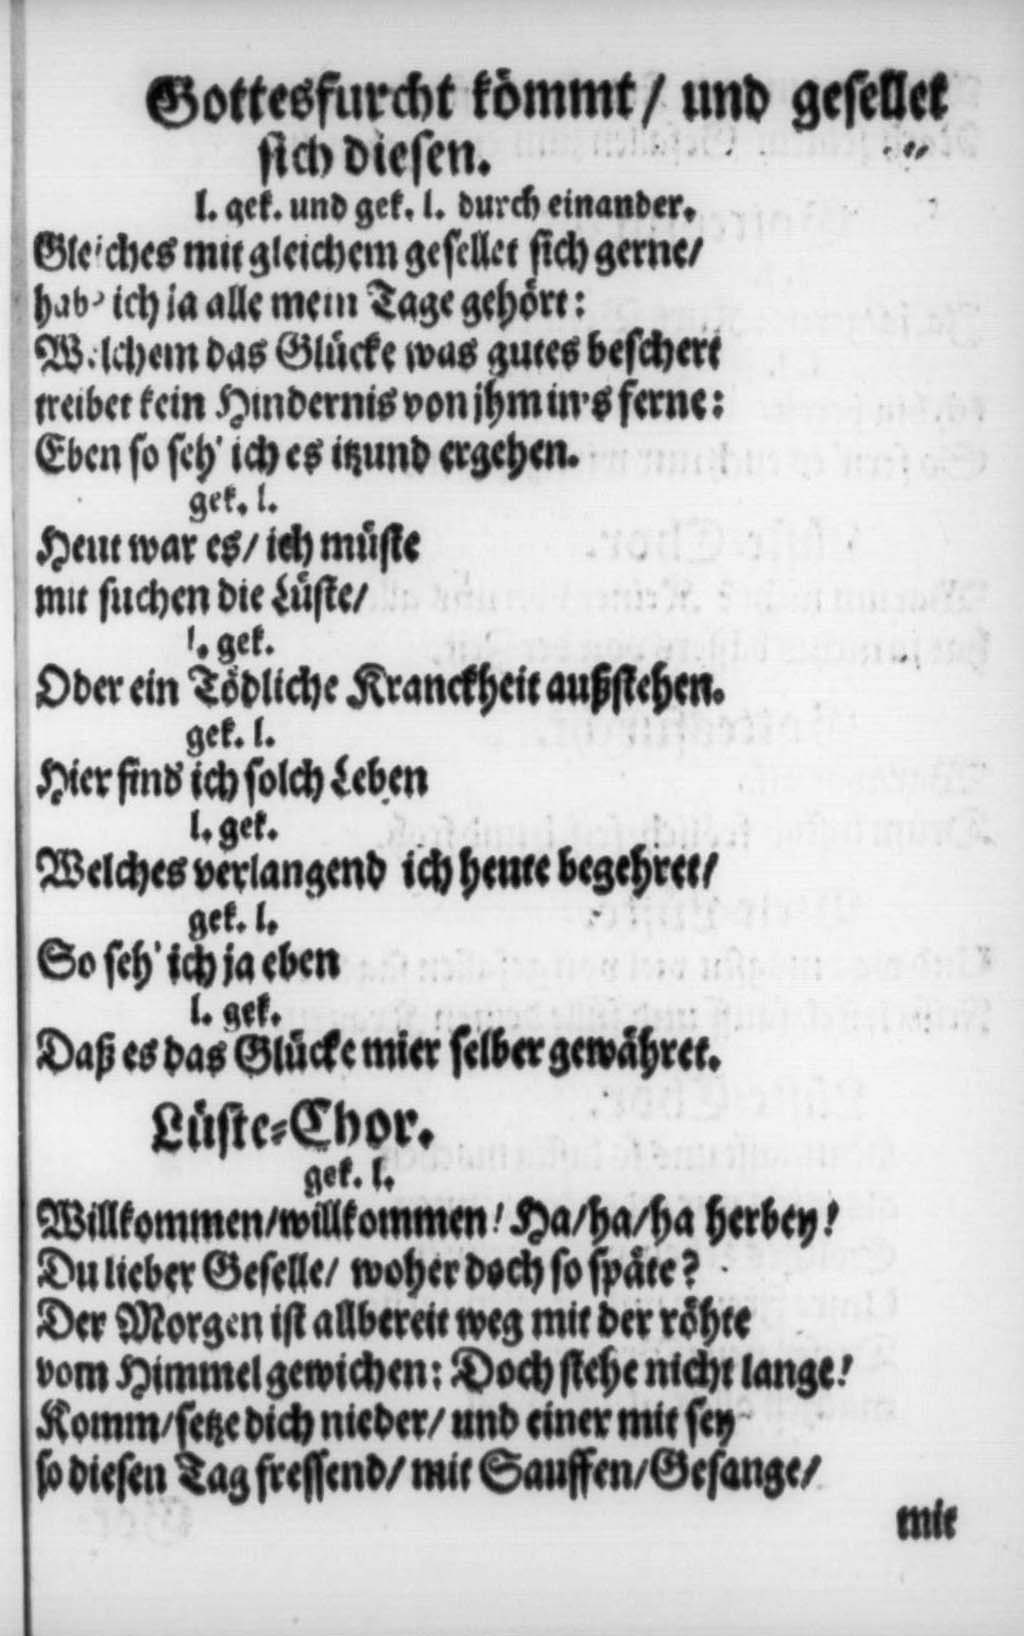 Gottesfurcht kömmt/ und gesellet
sich diesen.
l. gek. und gek. l. durch einander.
Gleiches mit gleichem gesellet sich gerne/
hab' ich ja alle mein Tage gehört:
Welchem das Glücke was gutes beschert
treibet kein Hindernis von jhm in's ferne:
Eben so seh' ich es itzund ergehen.
gek. l.
Heut war es/ ich müste
mit suchen die Lüste/
l. gek.
Oder ein Tödliche Kranckheit außstehen.
gek. l.
Hier find ich solch Leben
l. gek.
Welches verlangend ich heute begehret/
gek. l.
So seh' ich ja eben
l. gek.
Daß es das Glücke mier selber gewähret.
Lüste-Chor.
gek. l.
Willkommen/willkommen! Ha/ha/ha herbey!
Du lieber Geselle/ woher doch so späte?
Der Morgen ist allbereit weg mit der röhte
vom Himmel gewichen: Doch stehe nicht lange!
Komm/setze dich nieder/ und einer mit sey
so diesen Tag fressend/ mit Sauffen/Gesange/
mit